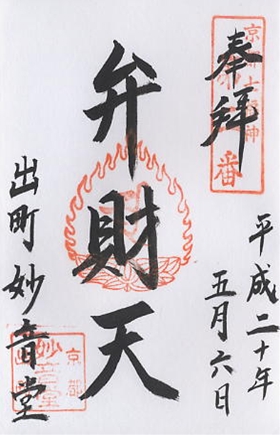 奉拝
平成二十年
五月六日
弁財天
出町妙音堂
京都
妙音堂